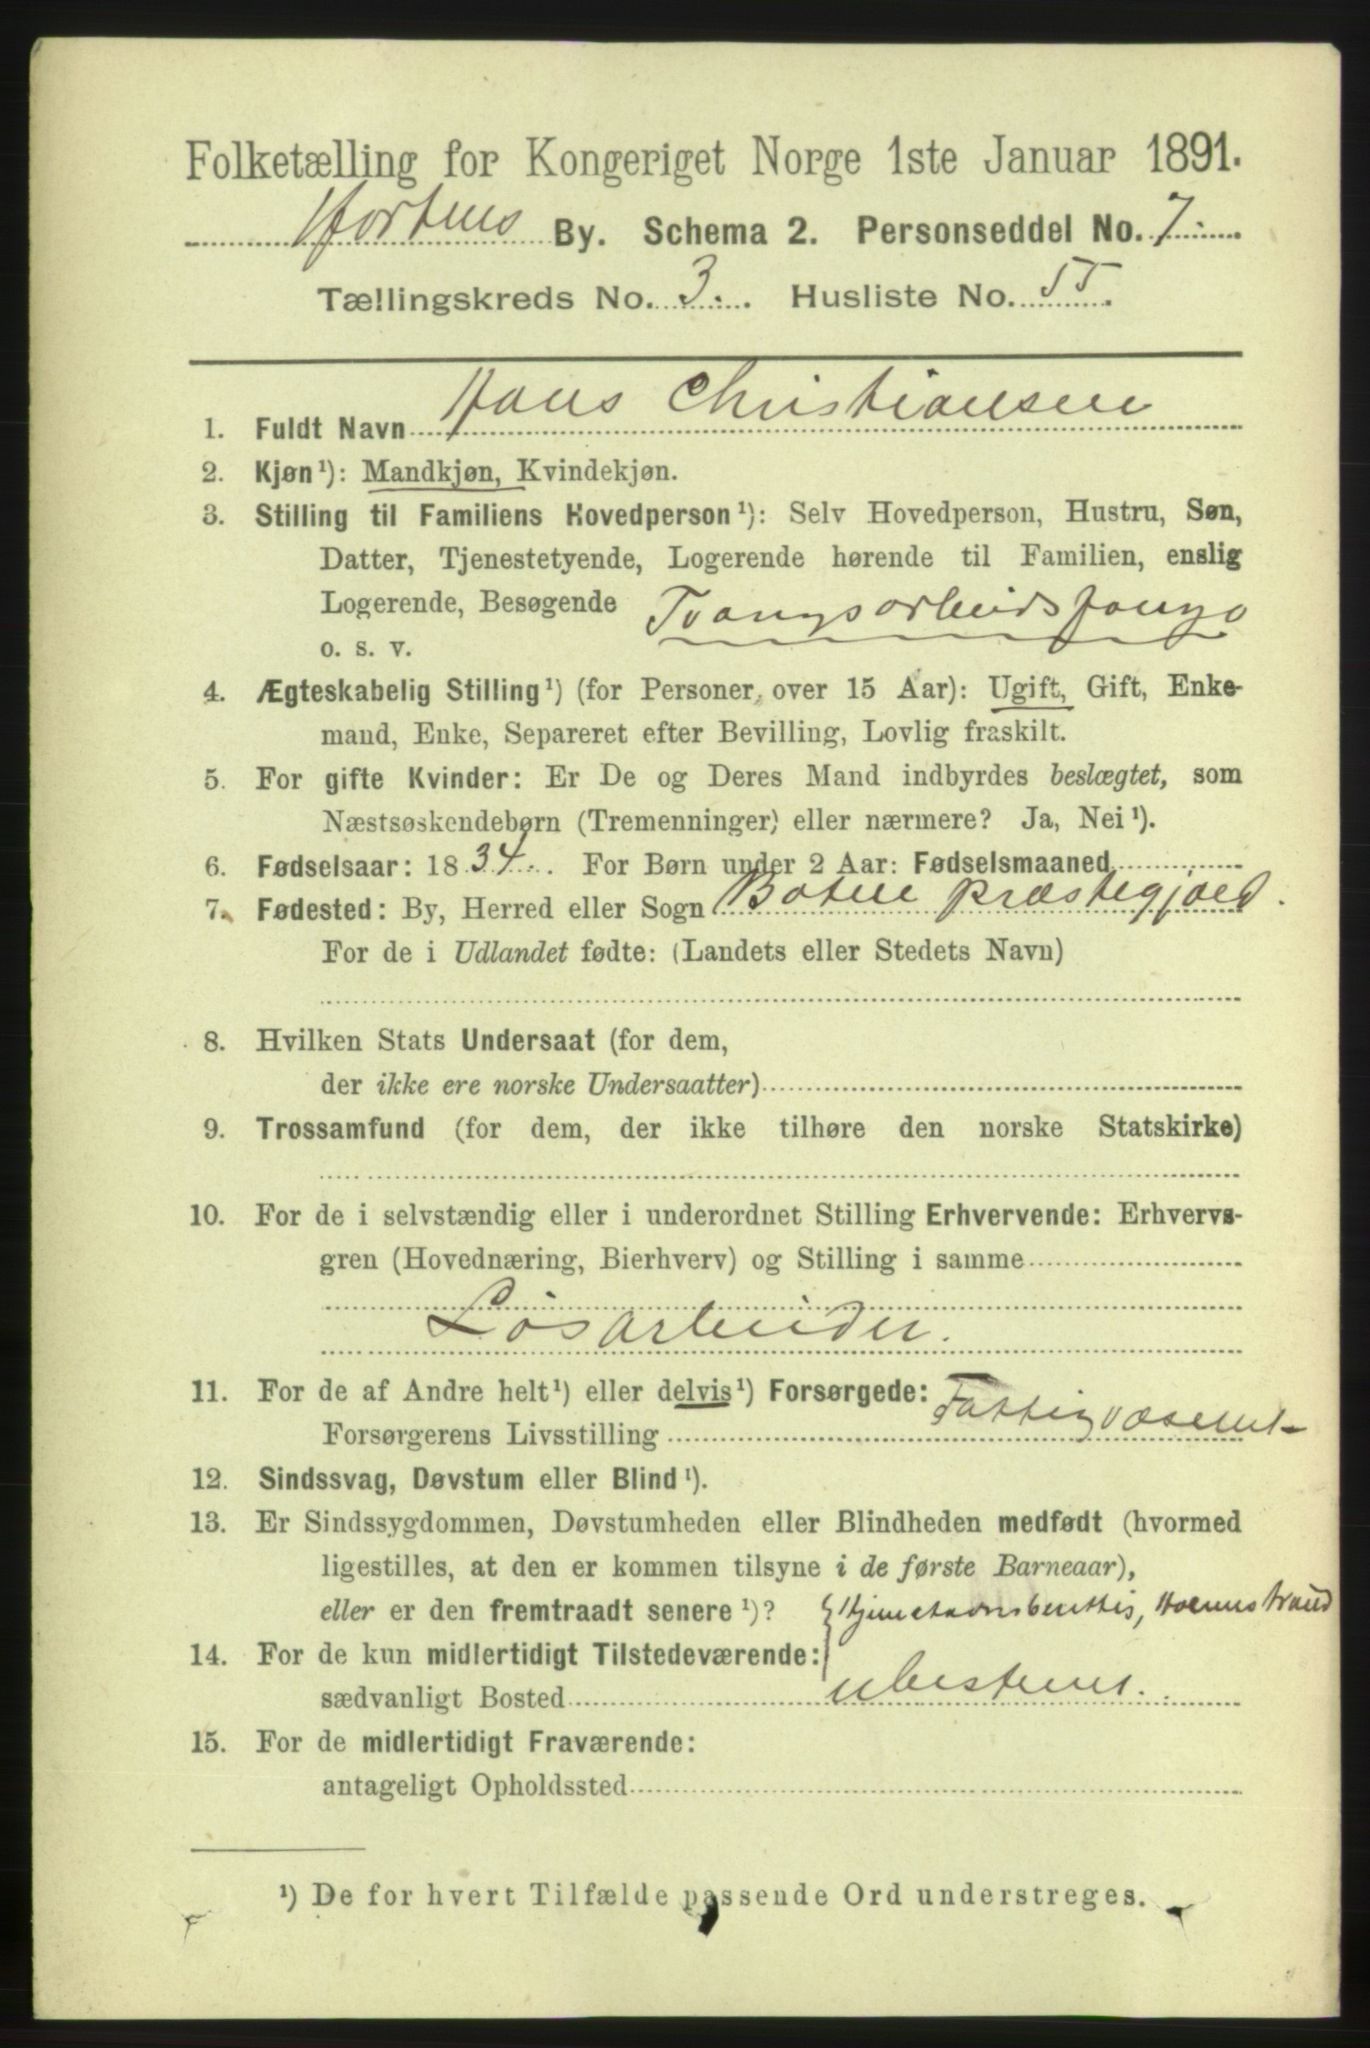 Folketælling for Kongeriget Norge 1ste Januar 1891.
Hortens By. Schema 2. Personseddel No. 7.
Tællingskreds No. 3. Husliste No. 55.
1. Fuldt Navn Hans Christiansen
2. Kjøn ¹): Mandkjøn, Kvindekjøn.
3. Stilling til Familiens Hovedperson ¹): Selv Hovedperson, Hustru, Søn,
Datter, Tjenestetyende, Logerende hørende til Familien, enslig
Logerende, Besøgende Tvangsarbeidsfange
o. s. v.
4. Ægteskabelig Stilling ¹) (for Personer over 15 Aar): Ugift, Gift, Enke-
mand, Enke, Separeret efter Bevilling, Lovlig fraskilt.
5. For gifte Kvinder: Er De og Deres Mand indbyrdes beslægtet, som
Næstsøskendebørn (Tremenninger) eller nærmere? Ja, Nei ¹).
6. Fødselsaar: 1834. For Børn under 2 Aar: Fødselsmaaned
7. Fødested: By, Herred eller Sogn Botne Præstegjæld.
For de i Udlandet fødte: (Landets eller Stedets Navn)
8. Hvilken Stats Undersaat (for dem,
der ikke ere norske Undersaatter)
9. Trossamfund (for dem, der ikke tilhøre den norske Statskirke)
10. For de i selvstændig eller i underordnet Stilling Erhvervende: Erhvervs-
gren (Hovednæring, Bierhverv) og Stilling i samme
Løsarbeider.
11. For de af Andre helt ¹) eller delvis ¹) Forsørgede:
Forsørgerens Livsstilling Fattigvæsenet
12. Sindssvag, Døvstum eller Blind ¹).
13. Er Sindssygdommen, Døvstumheden eller Blindheden medfødt (hvormed
ligestilles, at den er kommen tilsyne i de første Barneaar),
eller er den fremtraadt senere ¹)? Hjemstavnsberettig, Holmestrand
14. For de kun midlertidigt Tilstedeværende:
sædvanligt Bosted ubestemt.
15. For de midlertidigt Fraværende:
antageligt Opholdssted
¹) De for hvert Tilfælde passende Ord understreges.